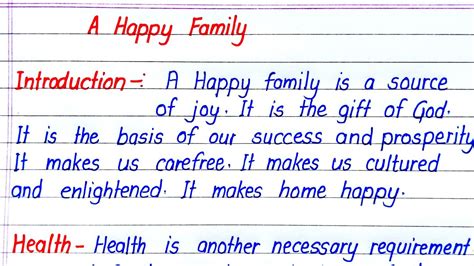 A Happy Family
Introduction-: A Happy family is a source
of joy. It is the gift of God.
It is the basis of our success and prosperity
It makes us carefree. It makes us cultured
and enlightened. It makes home happy.
Health- Health is another necessary requirement